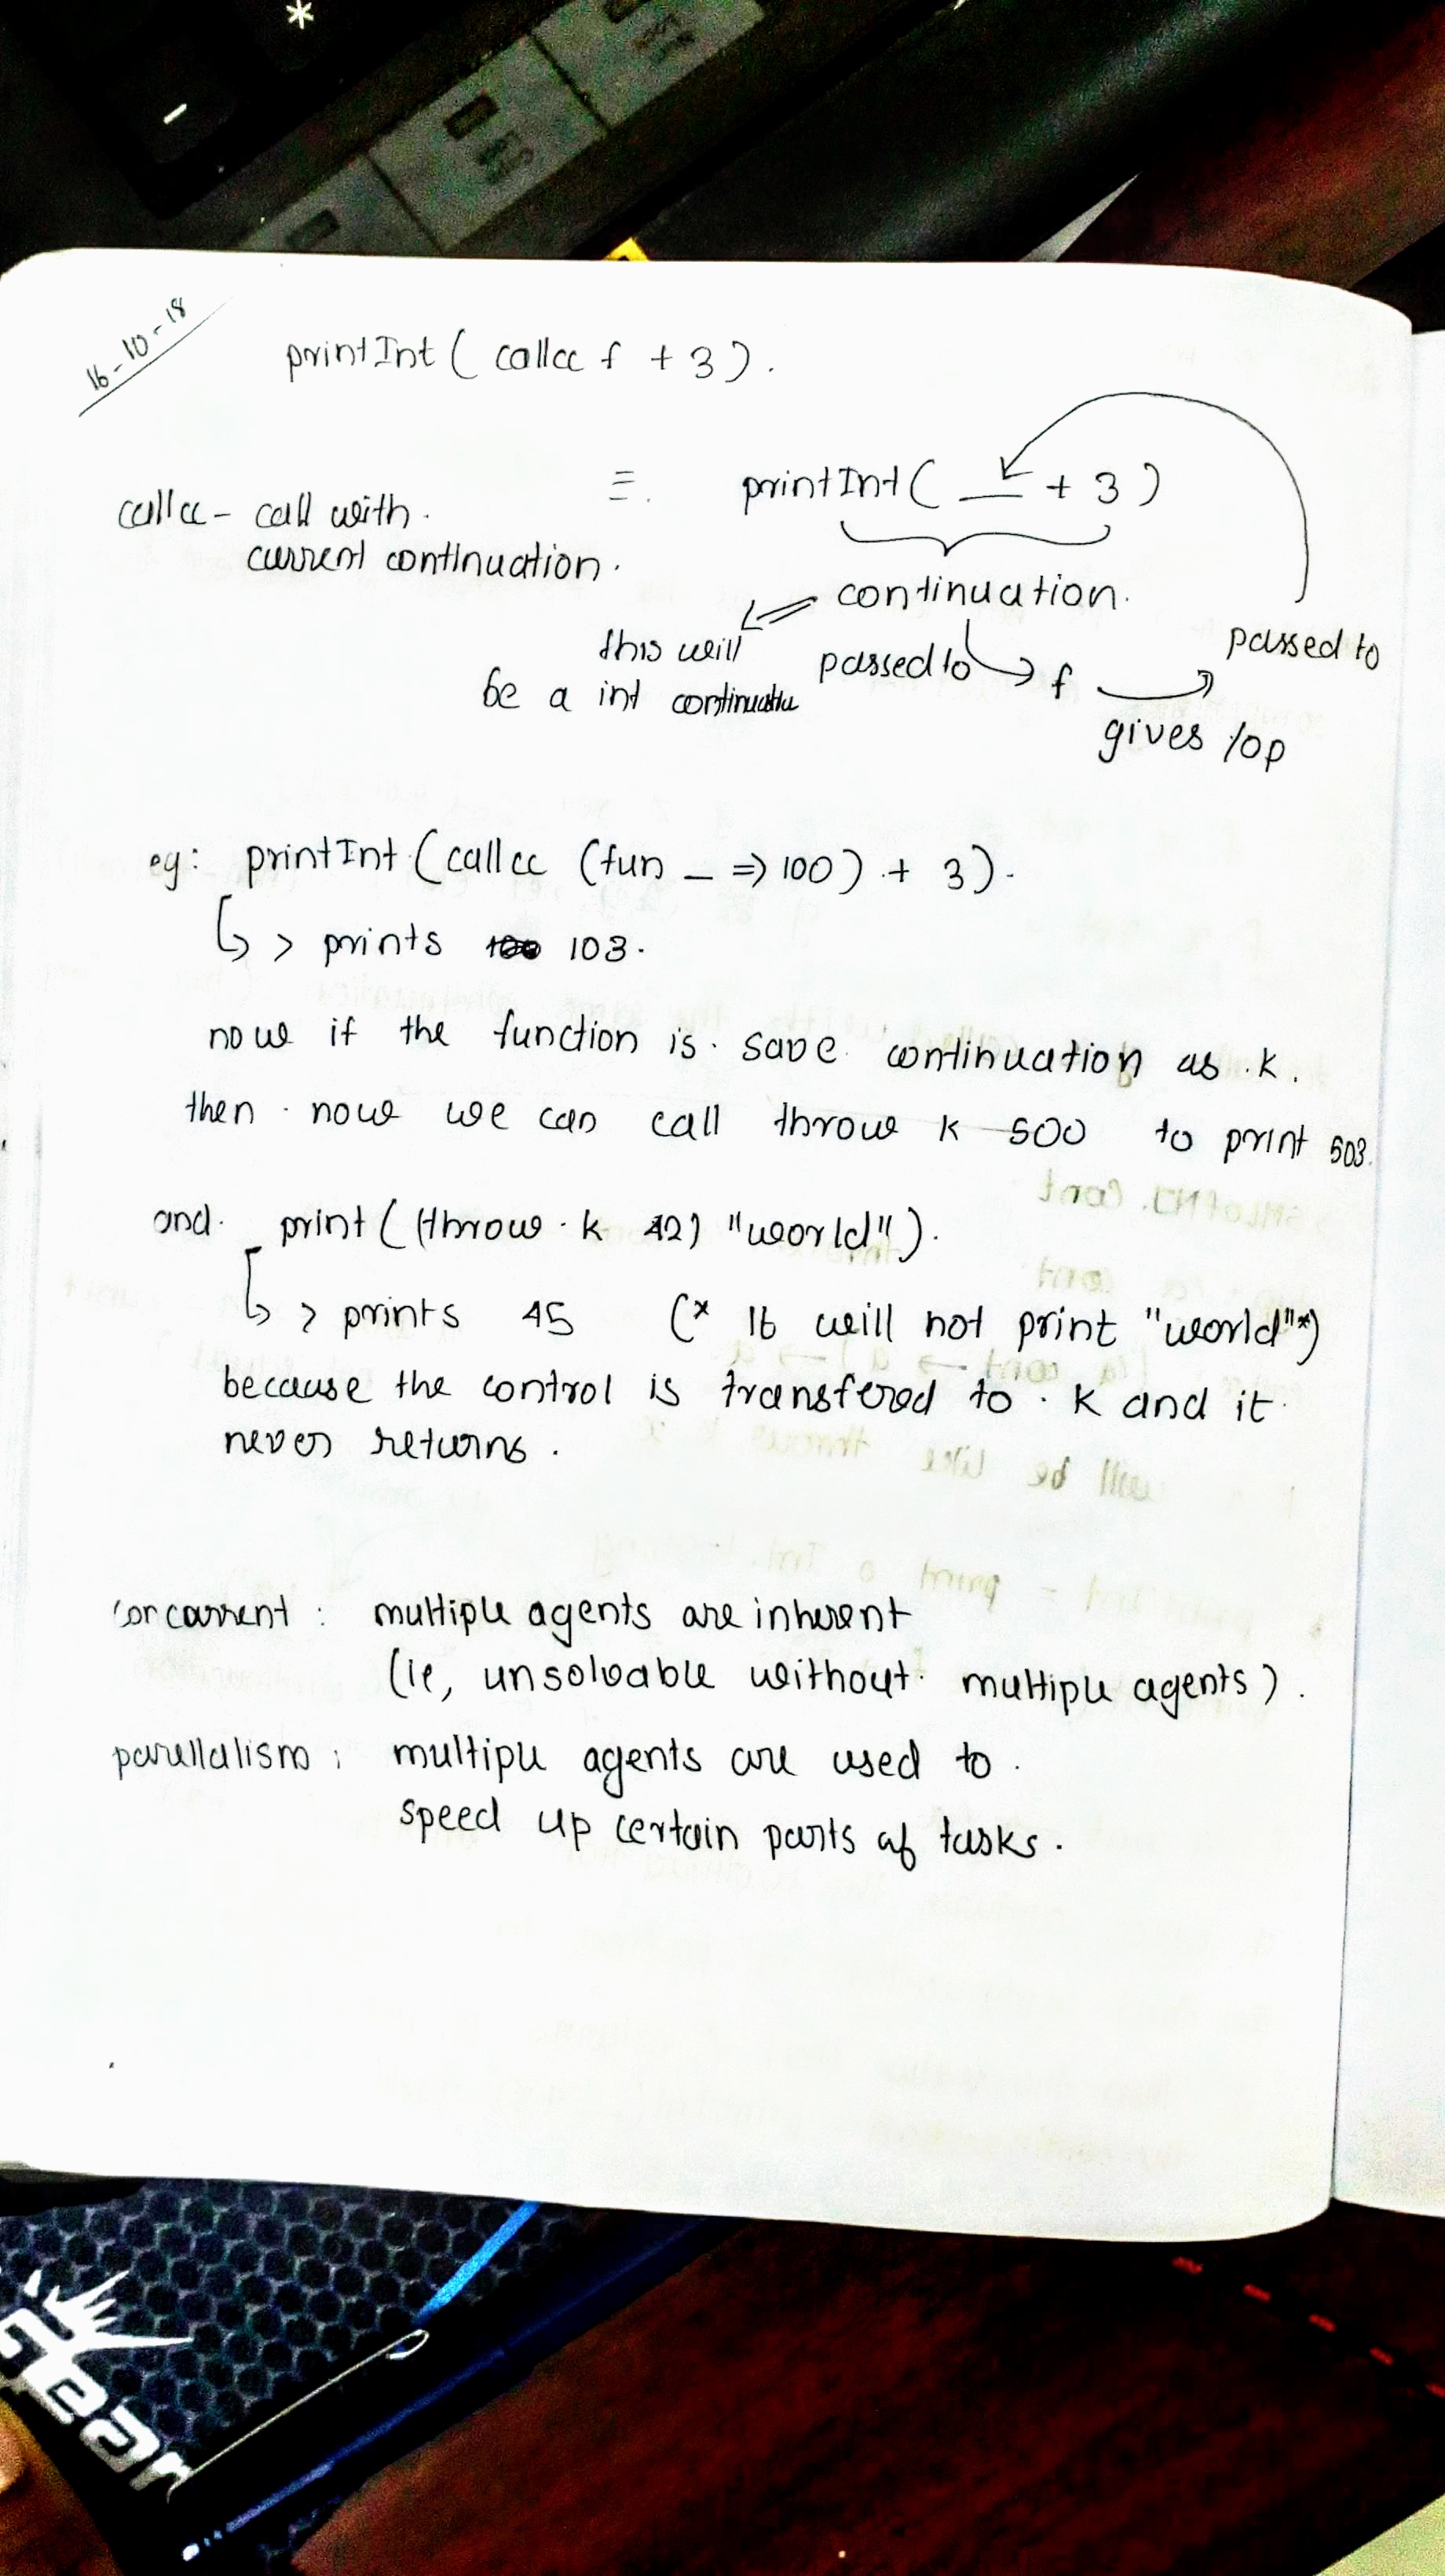 16-10-18
printInt ( callcc f + 3 ).
≡. printInt ( __ + 3 )
callcc - call with.
current continuation.
continuation.
this will
be a int
passed to f
gives /op
passed to
eg: printInt (callcc (fun _ => 100) + 3).
> prints 103.
now if the function is save continuation as k.
then now we can call throw k 500 to print 503.
and. print ( (throw k 42) "world" ).
> prints 45 (* It will not print "world" *)
because the control is transfered to k and it
never returns.
concurrent : multiple agents are inherent
(ie, unsolvable without multiple agents).
parallalism : multiple agents are used to
speed up certain parts of tasks.
*
-